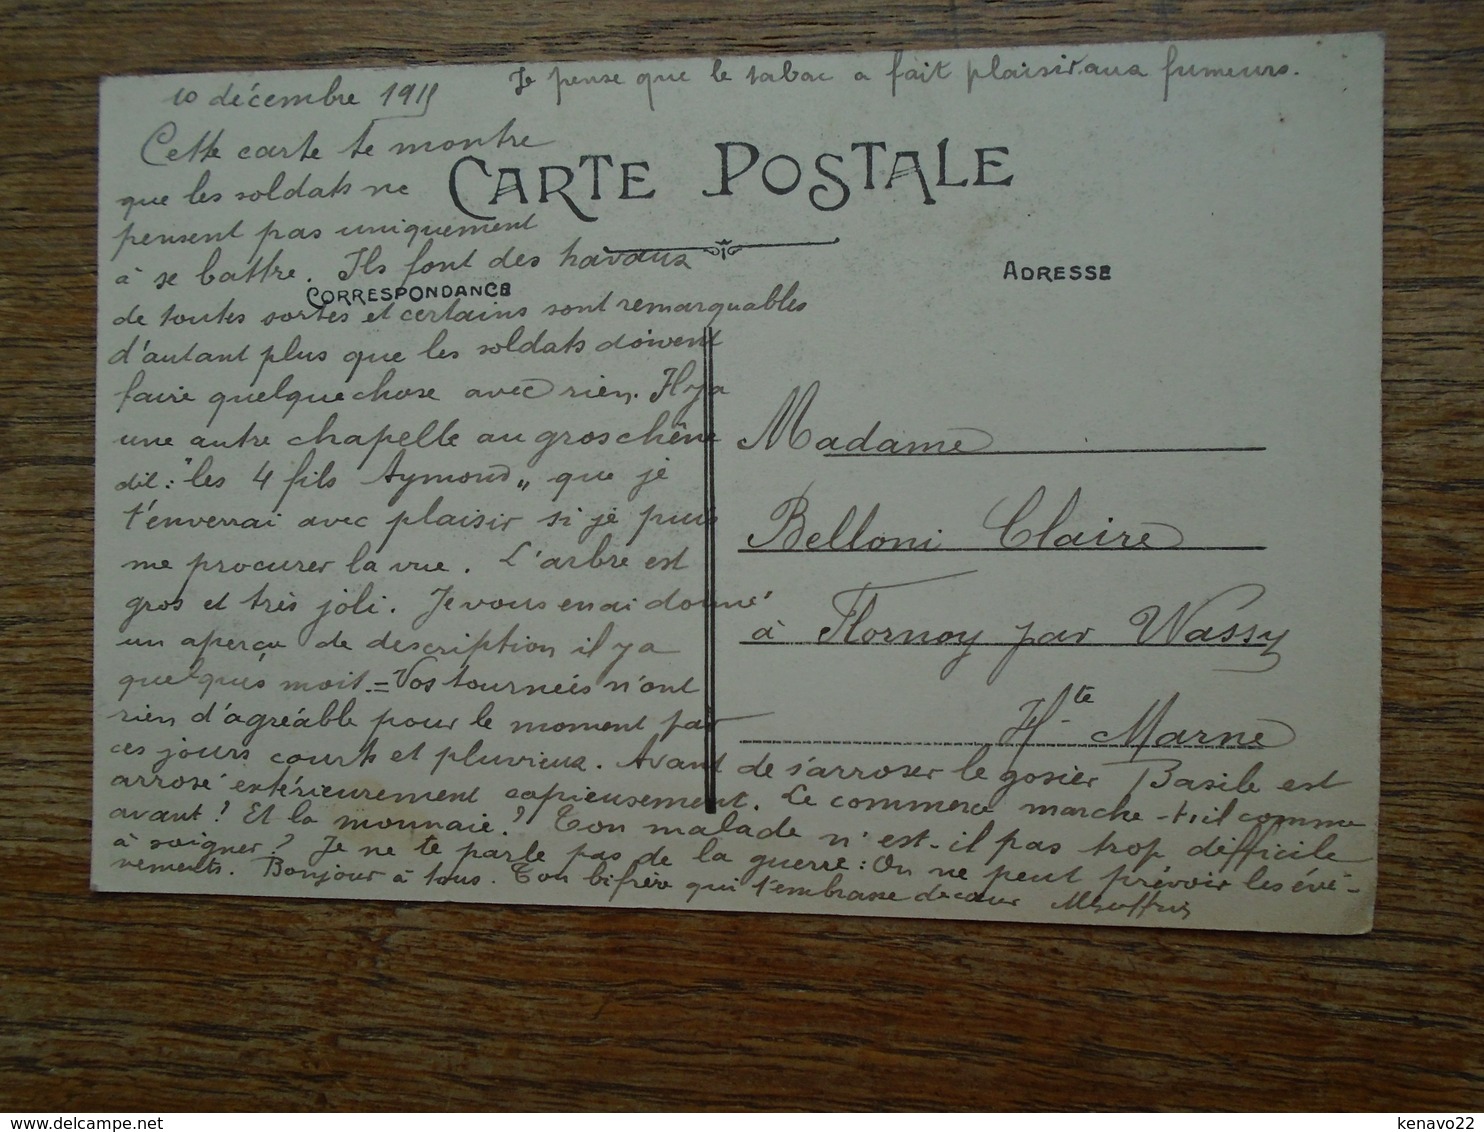 10 décembre 1915
Je pense que le tabac a fait plaisir aux fumeurs.
Cette carte te montre
que les soldats ne
pensent pas uniquement
à se battre. Ils font des travaux
de toutes sortes et certains sont remarquables
d'autant plus que les soldats doivent
faire quelque chose avec rien. Il y a
une autre chapelle au gros chêne
dit : "les 4 fils Aymond„ que je
t'enverrai avec plaisir si je puis
me procurer la vue. L'arbre est
gros et très joli. Je vous en ai donné
un aperçu de description il y a
quelques mois. = Vos tournées n'ont
rien d'agréable pour le moment par
ces jours courts et pluvieux. Avant de s'arroser le gosier Basile est
arrosé extérieurement copieusement. Le commerce marche-t-il comme
avant ? Et la monnaie ? Ton malade n'est-il pas trop difficile
à soigner ? Je ne te parle pas de la guerre : On ne peut prévoir les évé-
nements. Bonjour à tous. Ton bifrère qui t'embrasse de cœur
CARTE POSTALE
CORRESPONDANCE
ADRESSE
Madame
Belloni Claire
à Flornoy par Wassy
Hte Marne
kenavo22